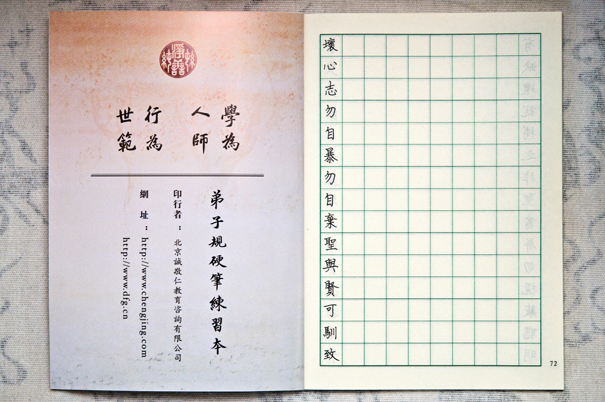 學為
人師
行為
世範
弟子規硬筆練習本
印行者：北京誠敬仁教育咨詢有限公司
網址：http://www.chengjing.com
http://www.dfg.cn
壞心志勿自暴勿自棄聖與賢可馴致
72